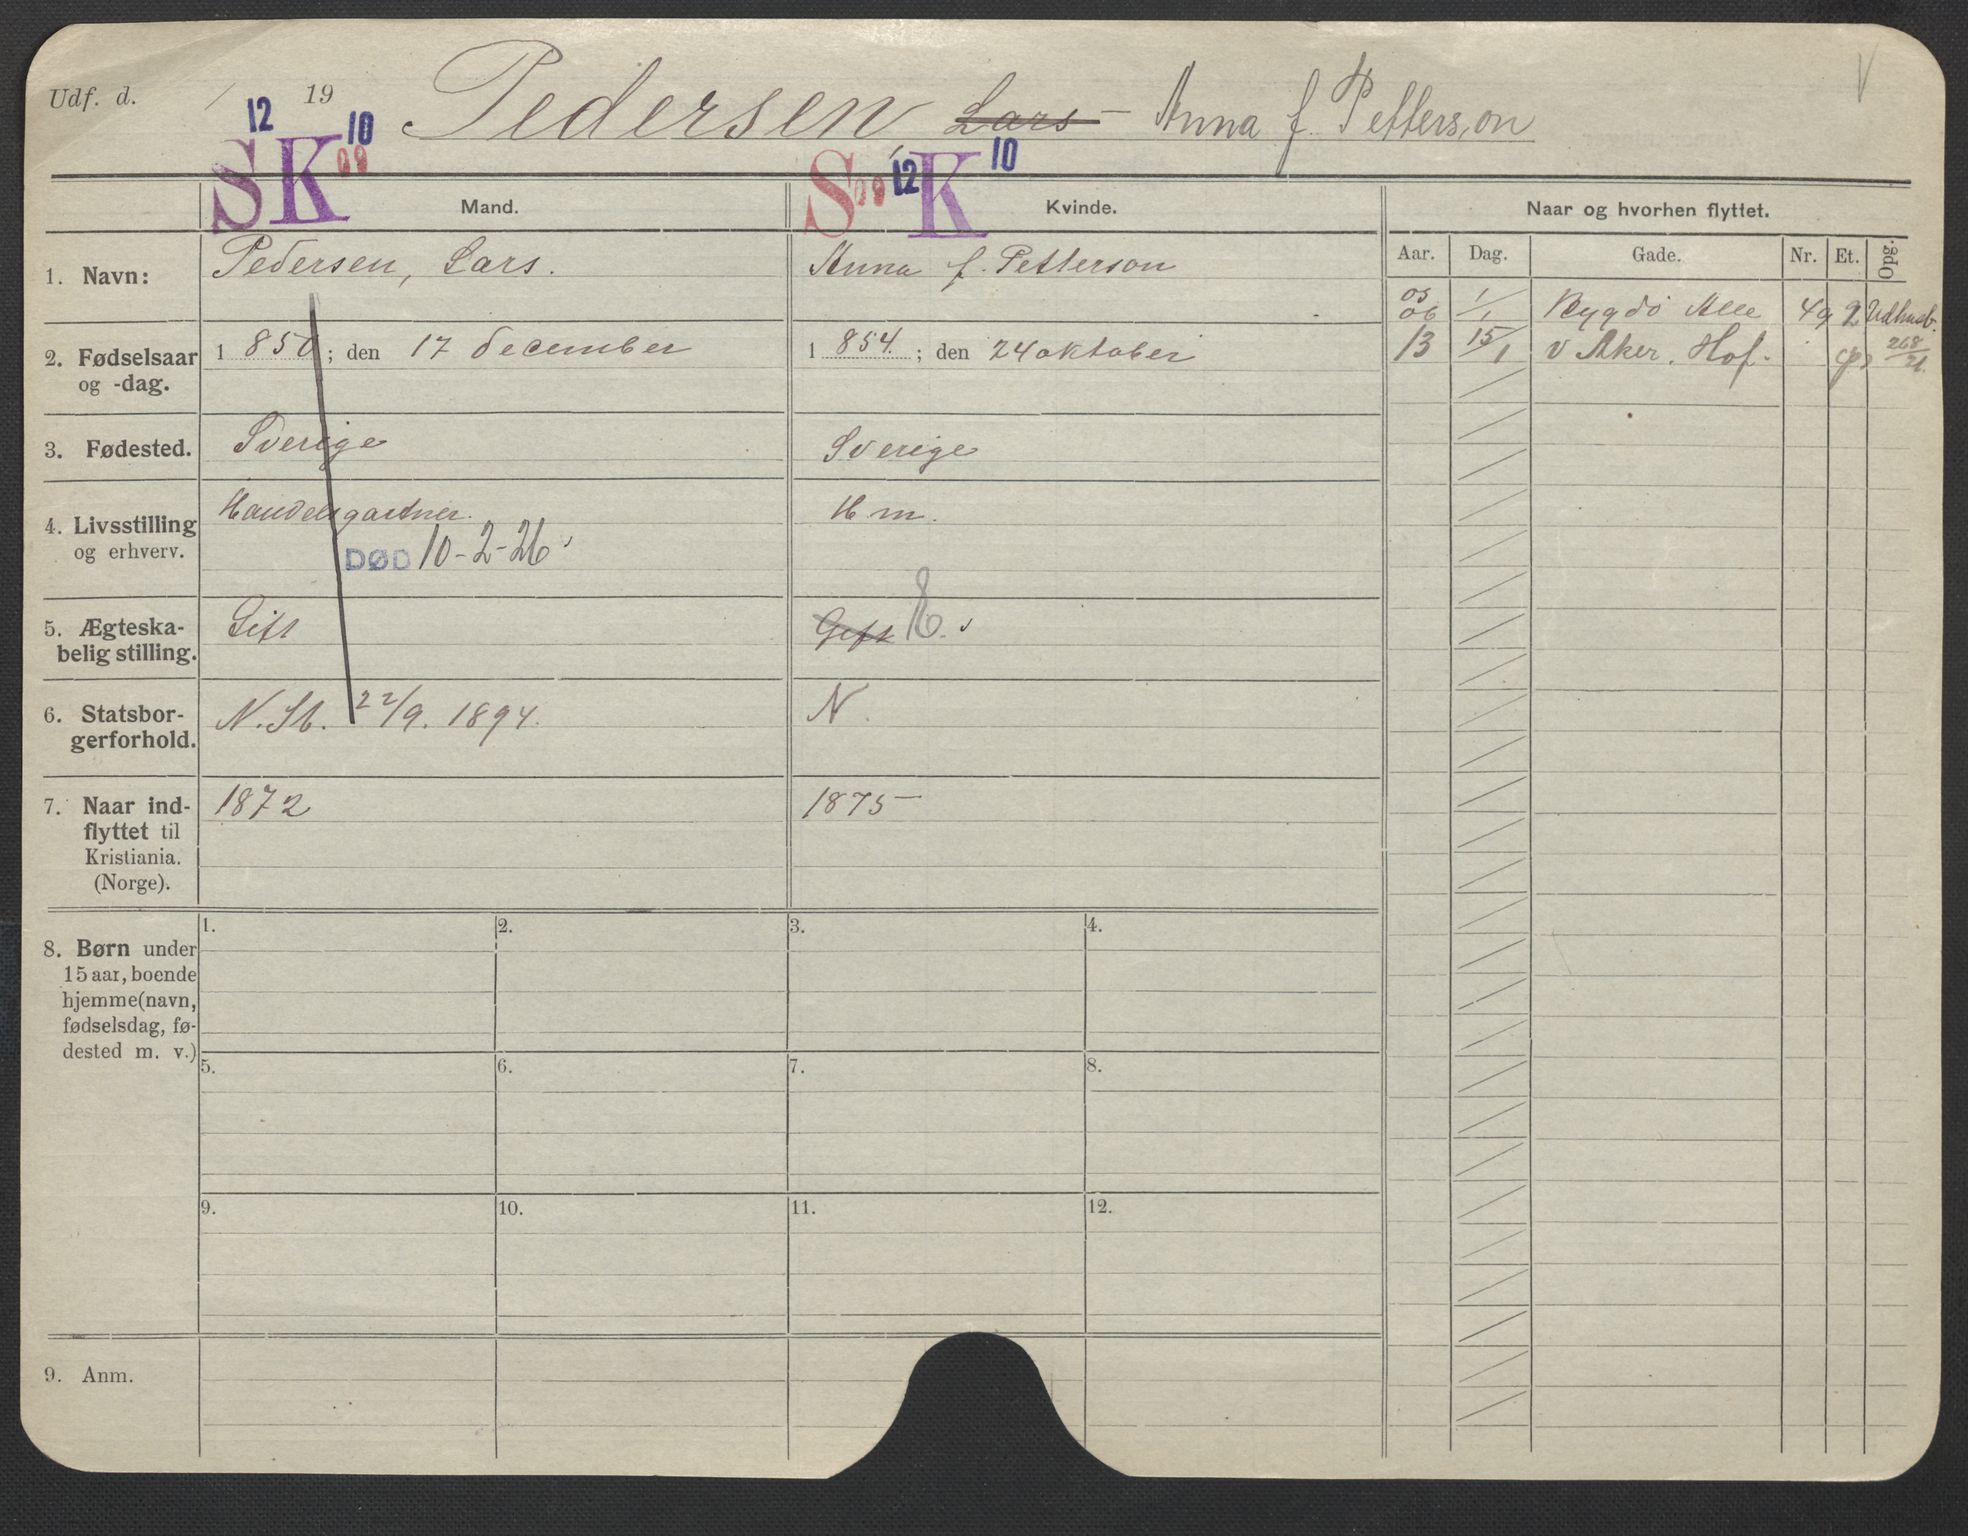 Udf. d. / 19 Pedersen Lars – Anna f. Petterson V
12 10 S K 09
S 09 12 K 10
Mand. Kvinde. Naar og hvorhen flyttet.
Aar. Dag. Gade. Nr. Et. Opg.
1. Navn: Pedersen, Lars. Anna f. Petterson
05
06 1/1 Bygdö Alle 49 2 Udhusb.
13 15/1 V Aker. Hof. 268/21.
2. Fødselsaar og -dag. 1 850; den 17 december 1 854.; den 24 oktober
3. Fødested. Sverige Sverige
4. Livsstilling og erhverv. Handelsgartner. H m.
DØD 10-2-26
5. Ægteska-
belig stilling. Gift Gift E.
6. Statsbor-
gerforhold. N. St. 22/9. 1894. N.
7. Naar ind-
flyttet til
Kristiania.
(Norge). 1872 1875
8. Børn under
15 aar, boende
hjemme (navn,
fødselsdag, fø-
dested m. v.)
1. 2. 3. 4.
5. 6. 7. 8.
9. 10. 11. 12.
9. Anm.